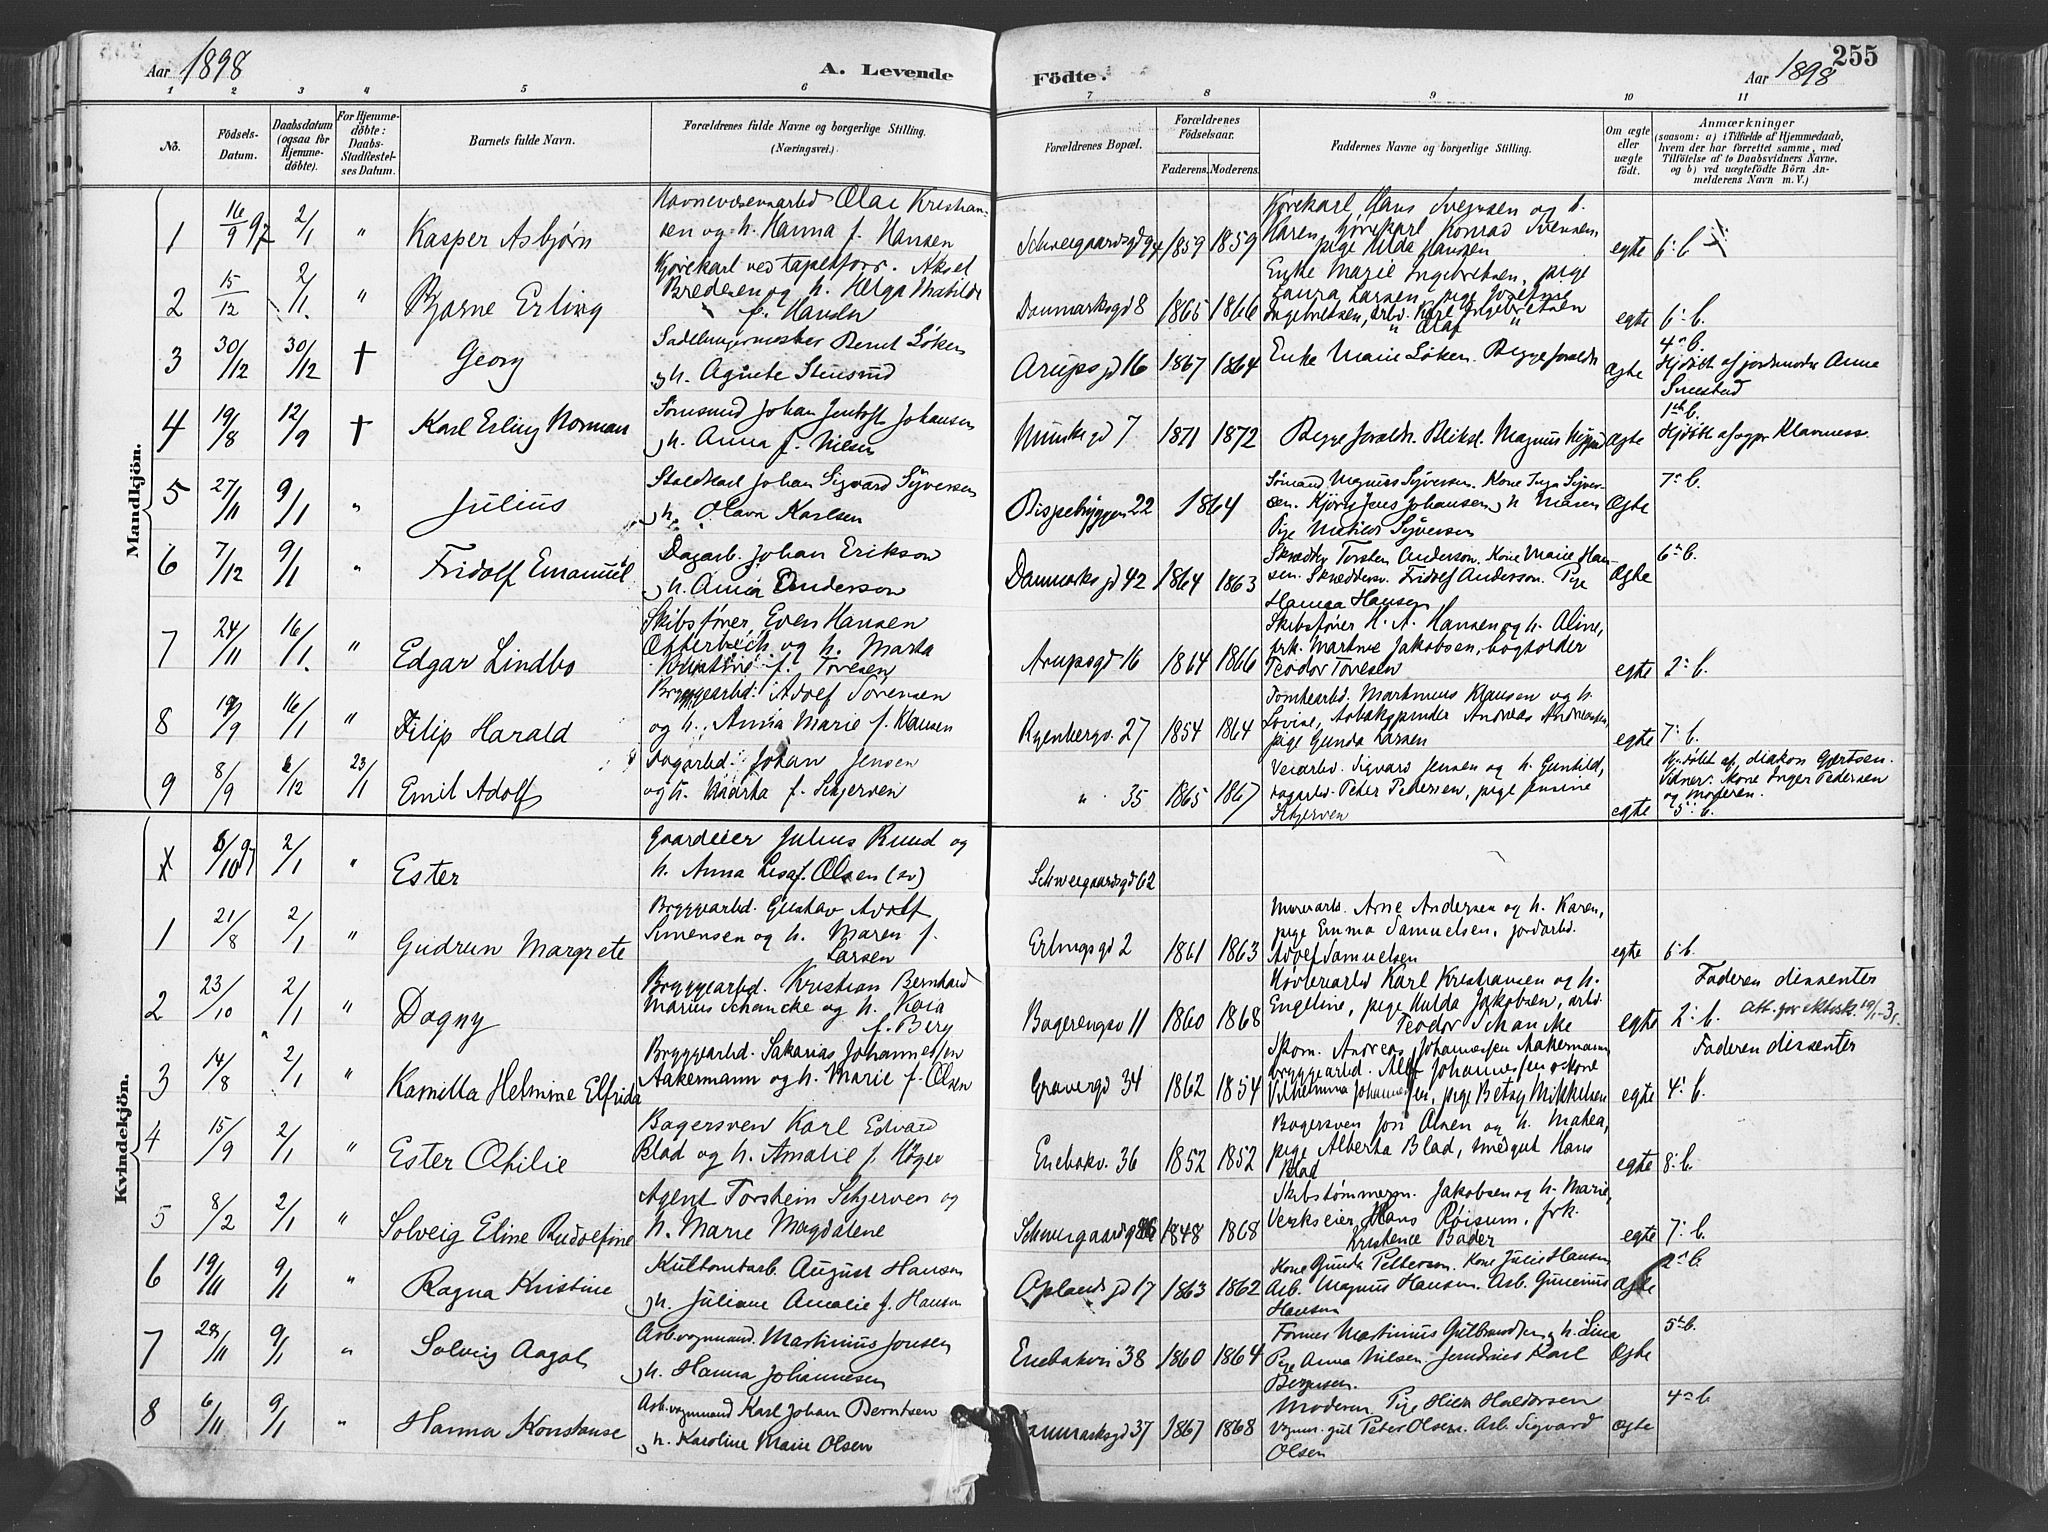 Aar 1898
A. Levende
Födte.
Aar 1898
255
1 2 3 4 5 6 7 8 9 10 11
No.
Födsels-Datum.
Daabsdatum (ogsaa for Hjemmedøbte).
For Hjemmedøbte: Daabs-Stadfæstelses Datum.
Barnets fulde Navn.
Forældrenes fulde Navne og borgerlige Stilling. (Næringsvei.)
Forældrenes Bopæl.
Forældrenes Födselsaar.
Faderens. Moderens.
Faddernes Navne og borgerlige Stilling.
Om ægte eller uægte födt.
Anmærkninger
(saasom: a) i Tilfælde af Hjemmedaab, hvem der har forrettet samme, med Tilföielse af to Daabsvidners Navne, og b) ved uægtefödte Börn Anmelderens Navn m. V.)
Mandkjön.
1 16/9 97 2/1 " Kasper Asbjørn
Havnevæsenarbd Olai Kristiansen og h. Hanna f. Hansen
Schweigaardsgd 94 1859 1859
Kjørekarl Hans Svendsen og h. Karen, kjørekarl Konrad Svensen, pige Hilda Hansen
egte 6: b.
2 15/12 2/1 " Bjarne Erling
Kjørekarl ved tapetforr. Aksel Bredesen og h. Helga Matilde f. Hansen
Danmarksgd 8 1865 1866
Enke Marie Ingebretsen, pige Laura Larsen, pige Josefine Ingebretsen, arb. Karl Ingebretsen " Olaf "
egte 6: b.
3 30/12 30/12 † Georg
Sadelmagermester Bernt Løken og h. Agnete Stensrud
Arupsgd 16 1867 1864
Enke Marie Løken. Begge forældre
Ægte 4de b. Hjdøbt af jordmoder Anna
4 19/8 12/9 † Karl Erling Norman
Sømand Johan Jentoft Johansen og h. Anna f. Nilsen
Munkegd 7 1871 1872
Begge forældr. Bliksl. Magnus
Ægte 1ste b. Hjdøbt af sogpr Klavness.
5 27/11 9/1 " Julius
Staldkarl Johan Sigvard Syversen og h. Olava Karlsen
Bispebryggen 22 1864
Sømand Magnus Syversen. Kone Inga Syversen. Kjørek. Jens Johansen og h Maren Pige Matilde Syversen
Ægte 7de b.
6 7/12 9/1 " Fridolf Emanuel
Dagarb. Johan Erikson og h. Anna Anderson
Danmarksgd 42 1864 1863
Skrædder Torsten Anderson. Kone Marie Hansen. Skræddersv. Fridolf Anderson. Pige Hanna Hansen
Ægte 6te b.
7 24/11 16/1 " Edgar Lindbo
Skibsfører Even Hansen og h. Marta f. Toresen
Arupsgd 16 1864 1866
Skibsfører H. A. Hansen og h. Aline, frk. Martine Jakobsen, bogholder Teodor Toresen
egte 2: b.
8 19/9 16/1 " Filip Harald
Bryggearbd. Adolf Sørensen og h. Anna Marie f. Klausen
Ryenbergv. 27 1854 1864
Tomtearbd. Martinius Klausen og h. Lovise, Andreas Andreassen, pige Gunda Larsen
egte 7: b.
9 8/9 6/12 23/1 Emil Adolf
Dagarbd. Johan Jensen og h. Marta f. Schjerven
" 35 1865 1867
Veiarbd. Sigvard Jensen og h. Gunhild, dagarbd. Peter Pedersen, pige Jensine Schjerven
egte Hj.døbt af diakon Gjertsen. Vidner: Kone Inger Pedersen og Moderen. 5: b.
Kvindekjön.
X 6/10 97 2/1 " Ester
Gaardeier Julius Ruud og h. Anna Lisa f. Olsen (sv)
Schweigaardsgd 62
1 21/8 2/1 " Gudrun Margrete
Bryggarbd. Gustav Adolf Simensen og h. Maren f. Larsen
Erlingsgd 2 1861 1863
Murerarb. Arne Andersen og h. Karen, pige Emma Samuelsen, jordarbd. Adolf Samuelsen
egte 6: b.
2 23/10 2/1 " Dagny
Bryggearbd. Kristian Bernhard Marius Schancke og h. Kaia f. Berg
Bogerengsv 11 1860 1868
Høvleriarbd Karl Kristiansen og h. Engeline, pige Hulda Jakobsen, arbd. Teodor Schancke
egte 2: b. Faderen dissenter
3 14/8 2/1 " Kamilla Helmine Elfrida
Bryggarbd. Sakarias Johannessen Aakermann og h. Marie f. Olsen
Gravergd 34 1862 1854
Skom. Andreas Johannessen Aakermann bryggearbd. Alf Johannessen o kone Vilhelmina Johannessen, pige Betsy Mikkelsen
egte 4: b. Faderen dissenter
4 15/9 2/1 " Ester Otilie
Bagersven Karl Edvard Blad og h. Amalie f. Høyer
Enebakv. 36 1852 1852
Bagersven Jon Olsen og h. Mathea, pige Alberta Blad, smedgut Hans Blad
egte 8: b.
5 8/2 2/1 " Solveig Eline Rudolfine
Agent Torstein Schjerven og h. Marie Magdalene
Schweigaardsgd 86 1848 1868
Skibstømmerm. Jakobsen og h. Marie, Verkseier Hans Røisum, frk. Kristence Bader
egte 7: b.
6 19/11 9/1 " Ragna Kristine
Kultomtarb. August Hansen og h. Juliane Amalie f. Hansen
Oplandsgd 17 1863 1862
Kone Gunda Petterson. Kone Julie Hansen Arb. Magnus Hansen. Arb. Gunerius Hansen
Ægte 2de b.
7 28/11 9/1 " Solveig Aagot
Arb.vognmand. Martinius Jonsen og h. Hanna Johannesen
Enebakvei 38 1860 1864
Former Martinius Gulbrandsen og h. Lina Pige Anna Nilsen. Jerndreier Karl Berntsen.
Ægte 5te b.
8 6/11 9/1 " Hanna Konstanse
Arb.vognmand Karl Johan Berntsen og h. Karoline Marie Olsen
Danmarksgd 37 1867 1868
Moderen Pige Hilda Haldorsen Vognm. gut Peter Olsen. Arb. Sigvard Olsen
ægte 4de b.